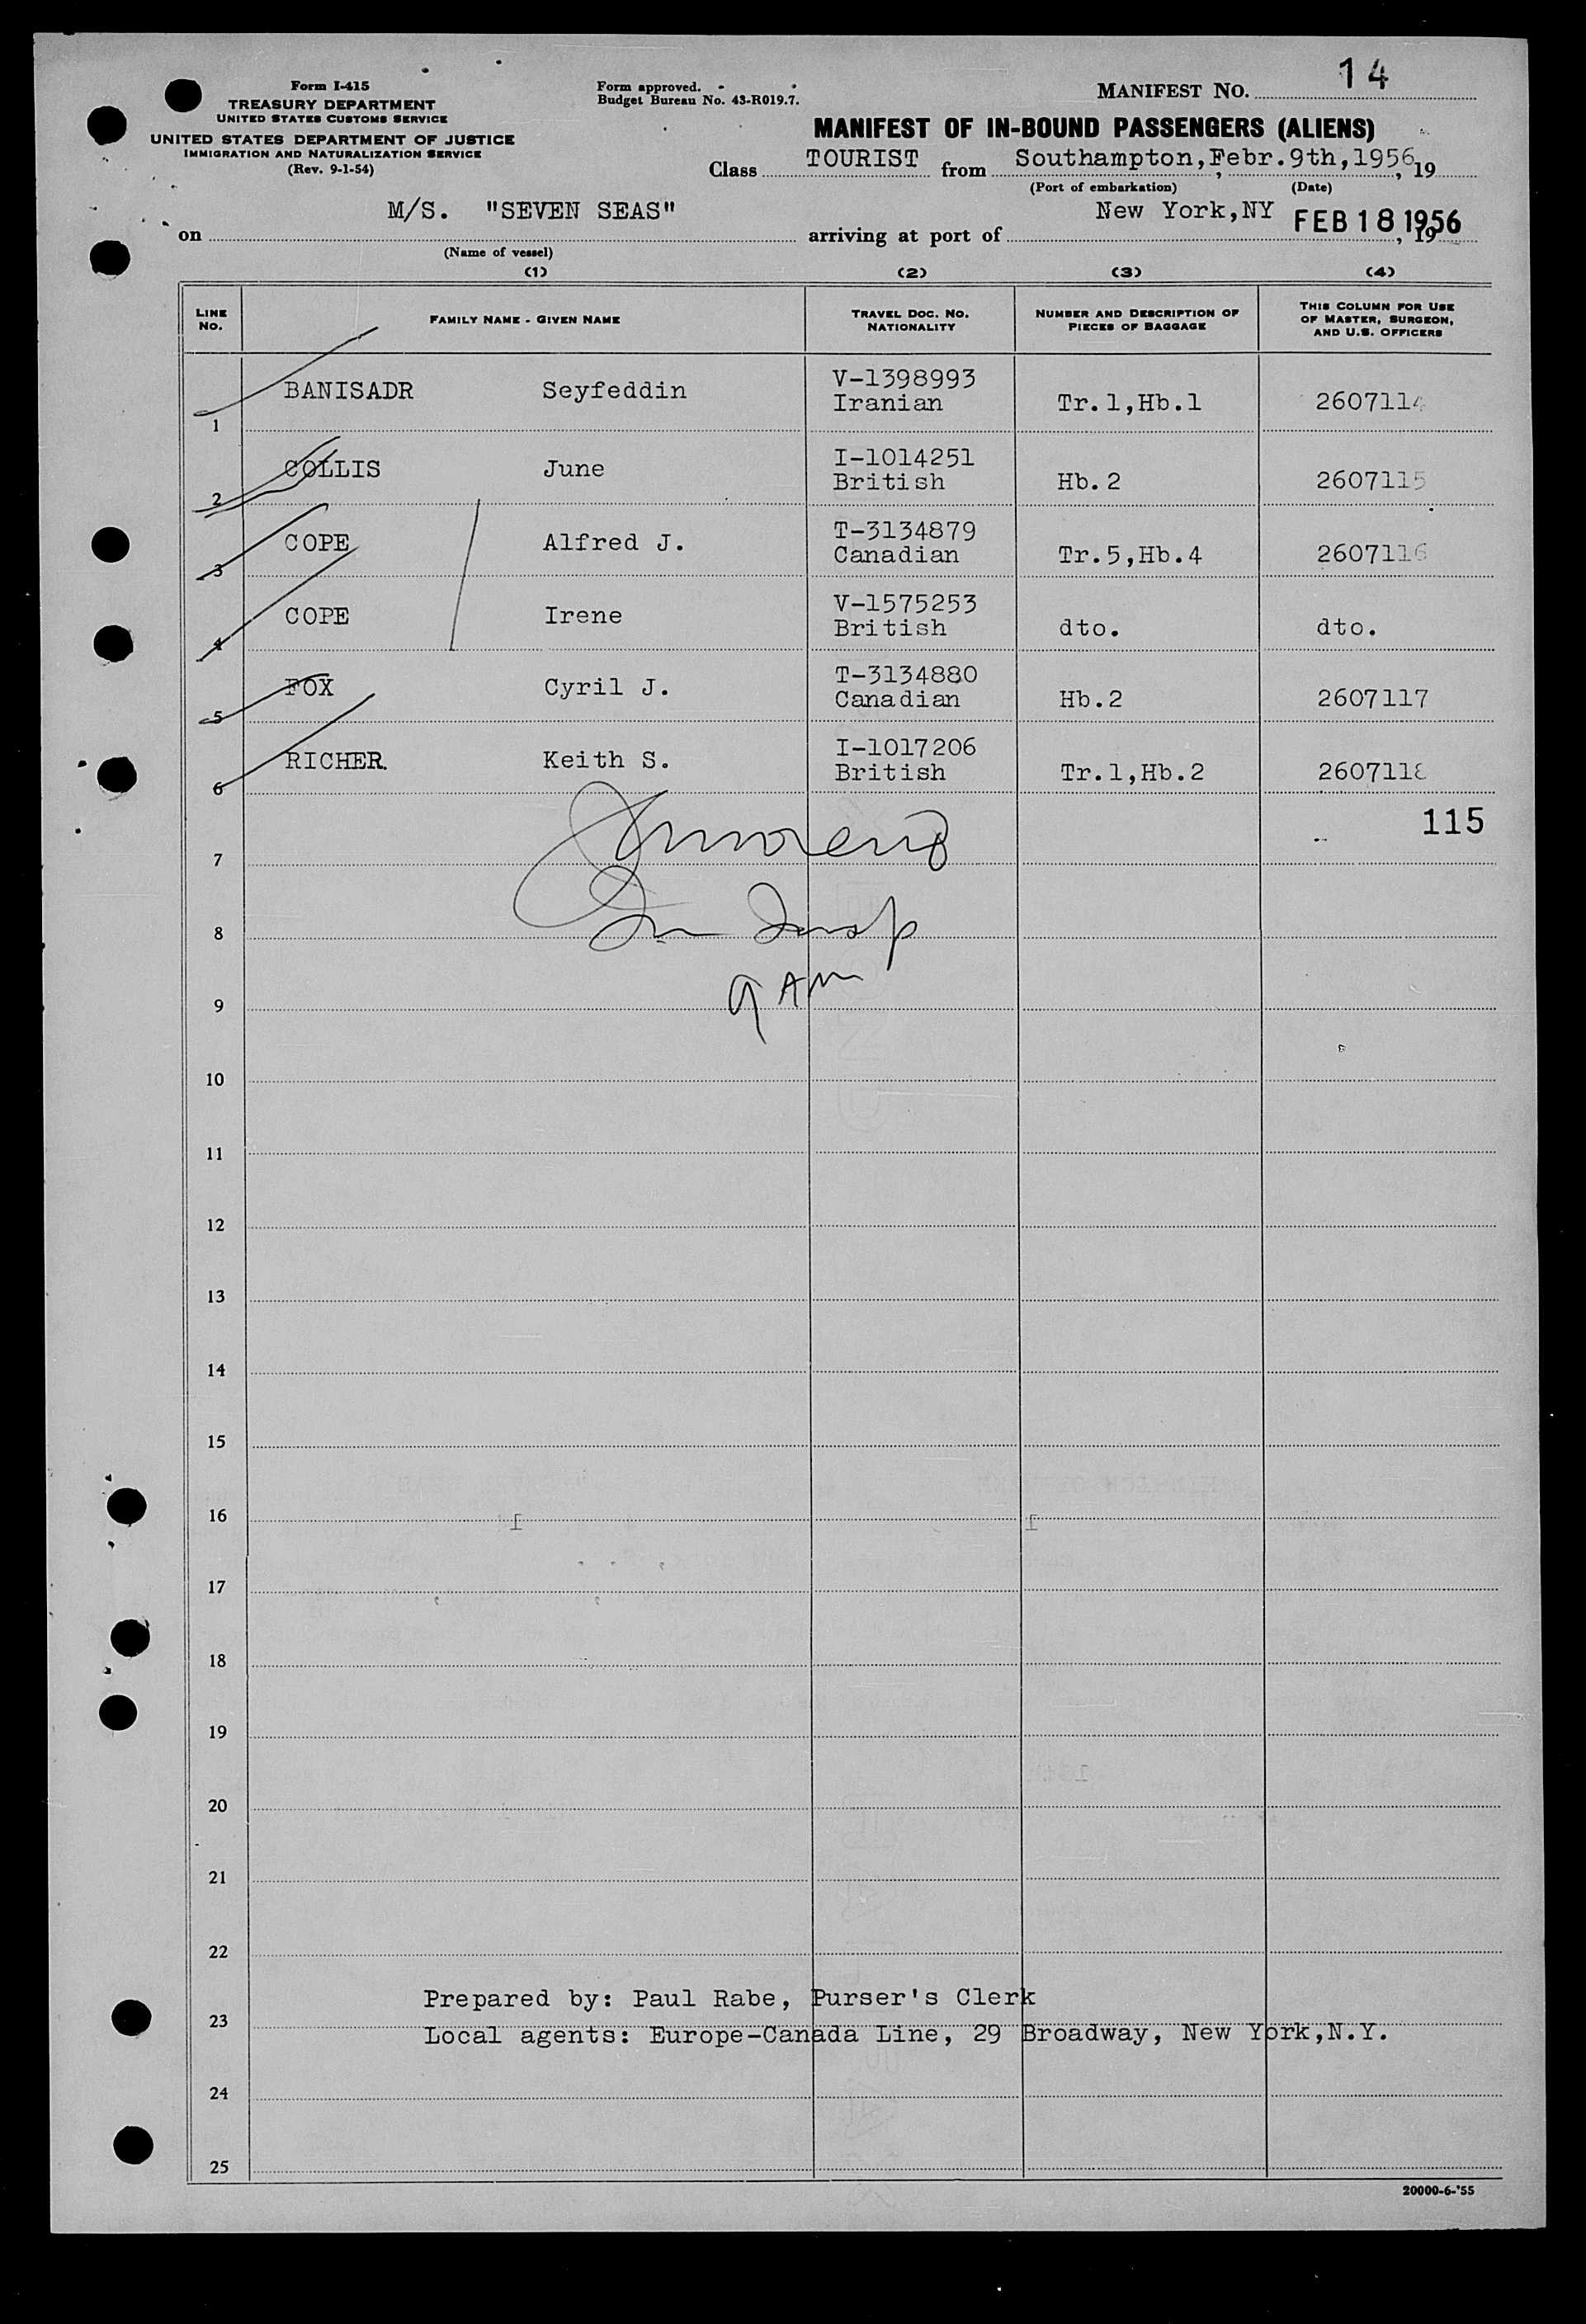 Form I-415
TREASURY DEPARTMENT
UNITED STATES CUSTOMS SERVICE
UNITED STATES DEPARTMENT OF JUSTICE
IMMIGRATION AND NATURALIZATION SERVICE
(Rev. 9-1-54)
Form approved.
Budget Bureau No. 43-R019.7.
MANIFEST NO. 14
MANIFEST OF IN-BOUND PASSENGERS (ALIENS)
Class TOURIST from Southampton, Febr.9th,1956, 19
(Port of embarkation) (Date)
on M/S. "SEVEN SEAS" arriving at port of New York,NY FEB 18 1956, 19
(Name of vessel)
(1) (2) (3) (4)
LINE NO. FAMILY NAME - GIVEN NAME TRAVEL DOC. NO. NATIONALITY NUMBER AND DESCRIPTION OF PIECES OF BAGGAGE THIS COLUMN FOR USE OF MASTER, SURGEON, AND U.S. OFFICERS
1 BANISADR Seyfeddin V-1398993 Iranian Tr.1,Hb.1 2607114
2 COLLIS June I-1014251 British Hb.2 2607115
3 COPE Alfred J. T-3134879 Canadian Tr.5,Hb.4 2607116
4 COPE Irene V-1575253 British dto. dto.
5 FOX Cyril J. T-3134880 Canadian Hb.2 2607117
6 RICHER. Keith S. I-1017206 British Tr.1,Hb.2 2607118
115
7
8
9 9 AM
10
11
12
13
14
15
16
17
18
19
20
21
22
Prepared by: Paul Rabe, Purser's Clerk
23
Local agents: Europe-Canada Line, 29 Broadway, New York,N.Y.
24
25
20000-6-'55